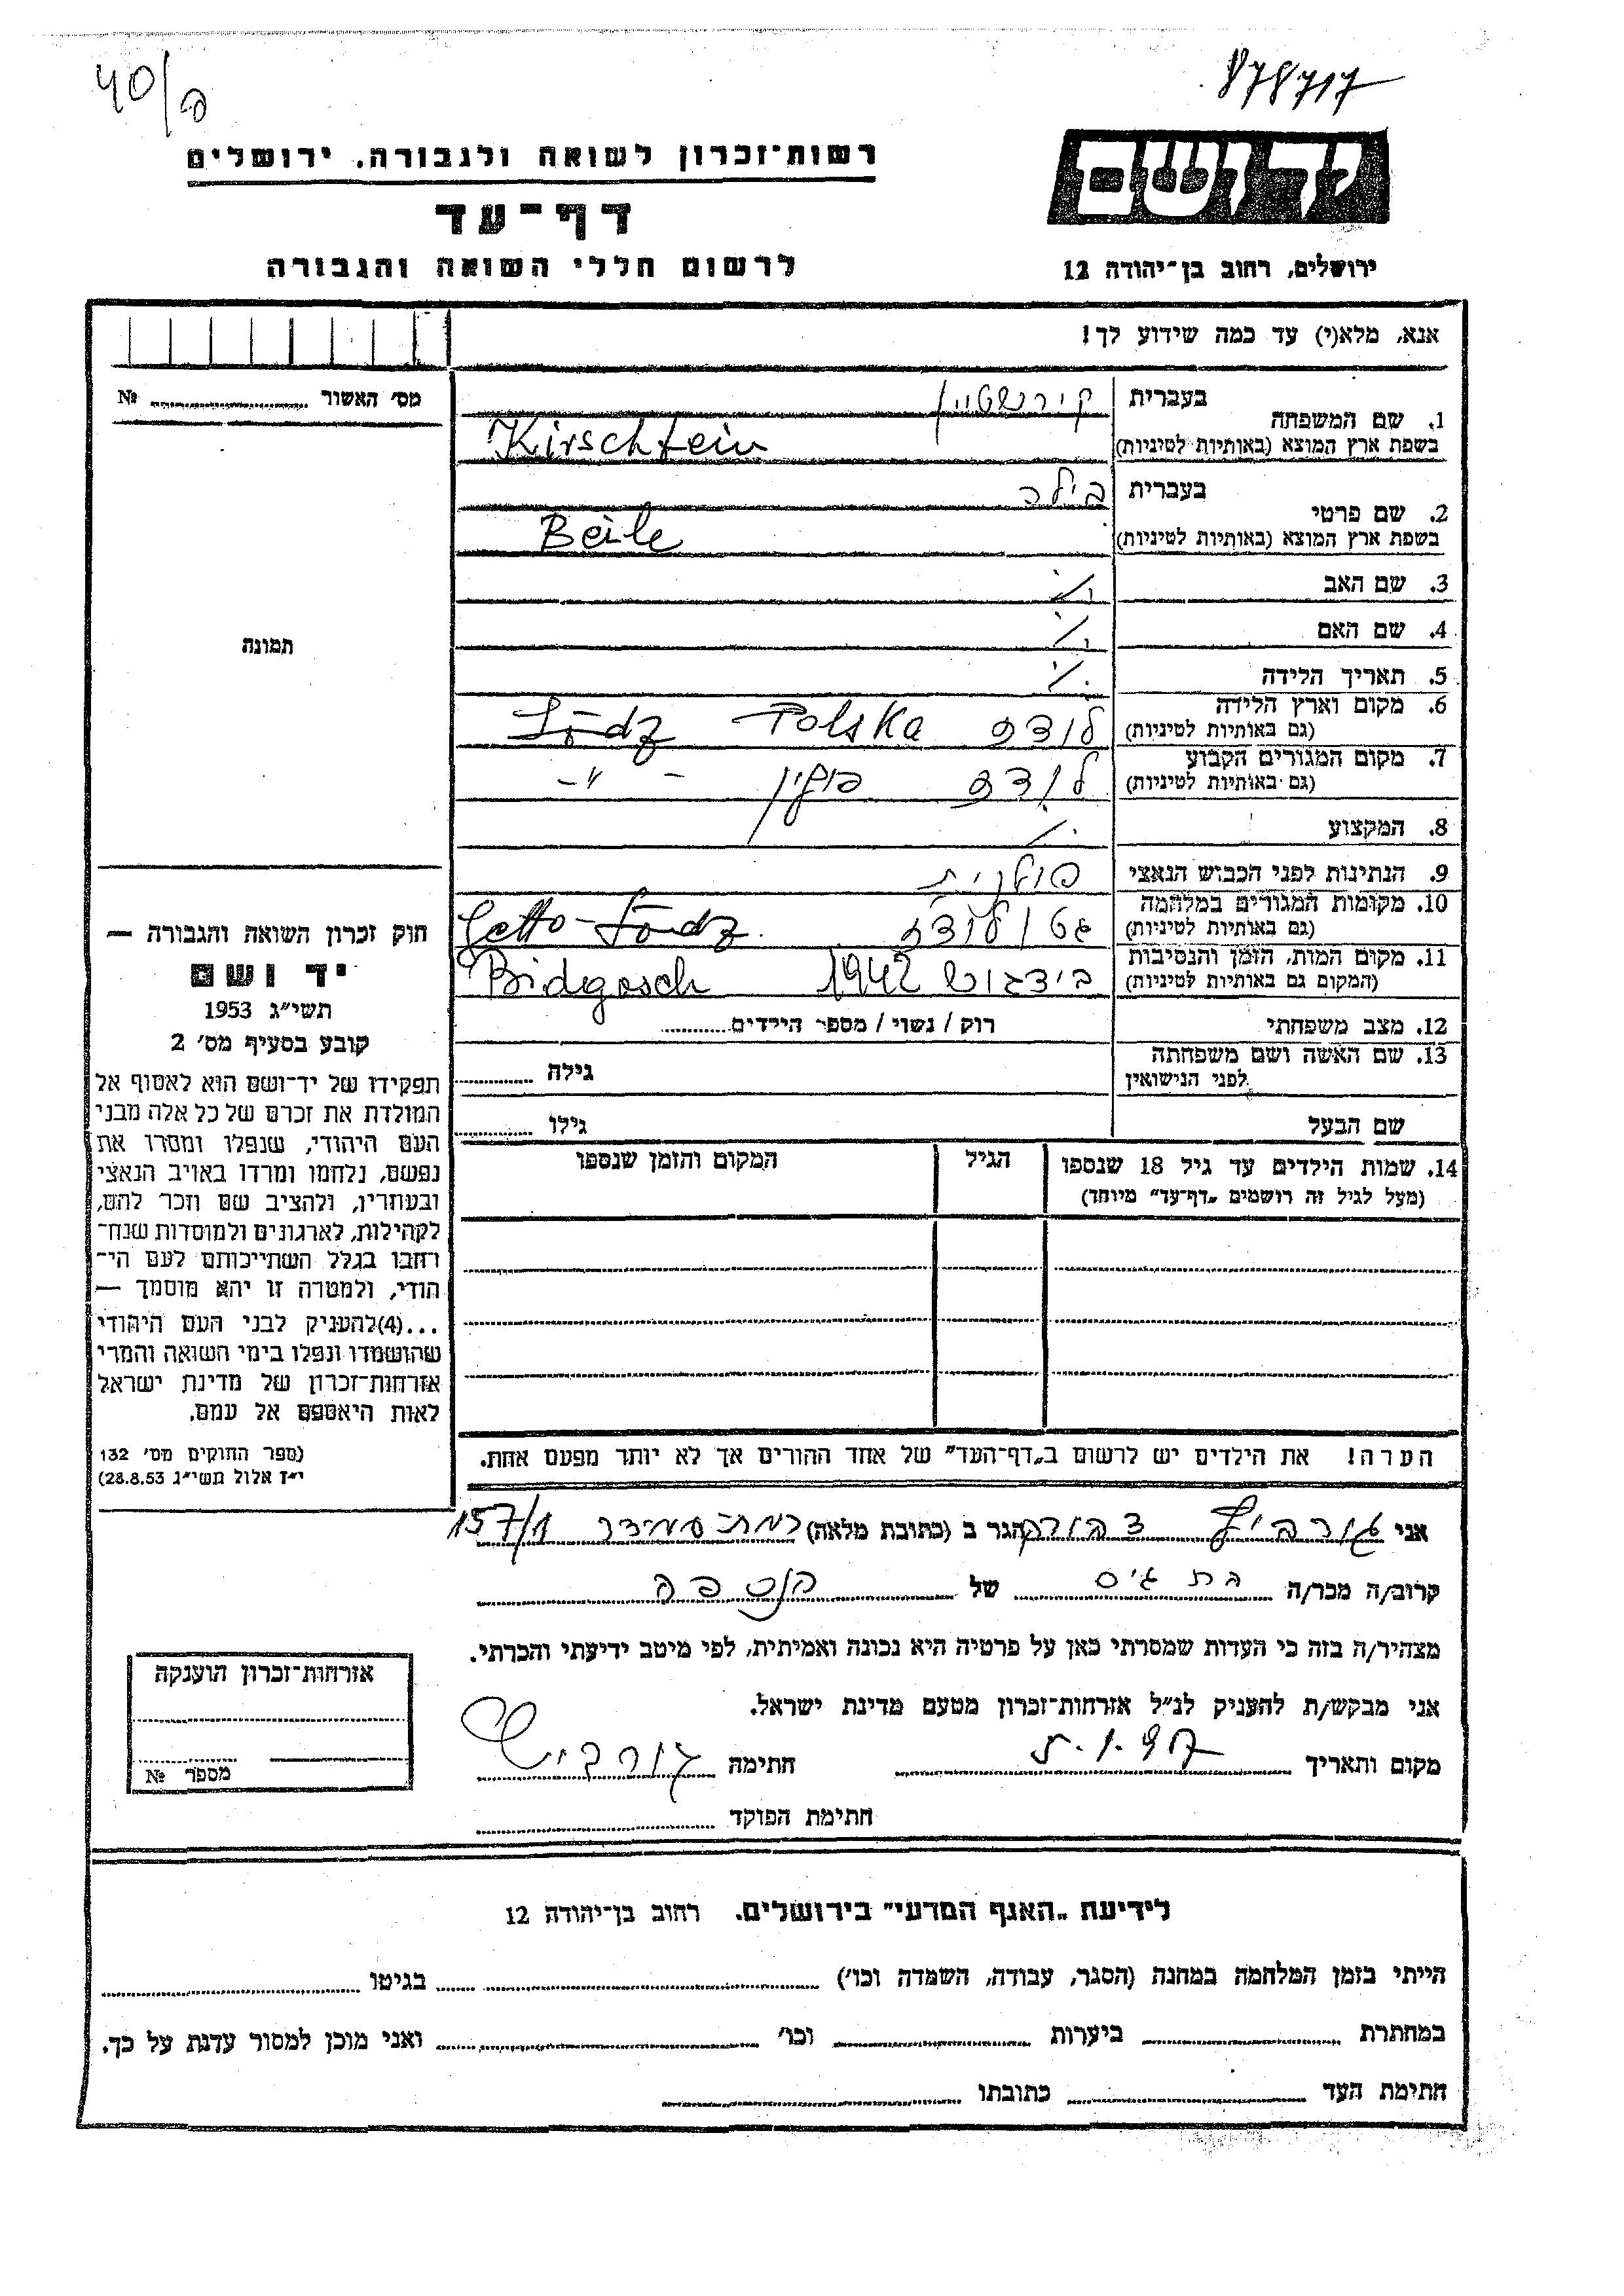 40/פ
878717
יד ושם
רשות־זכרון לשואה ולגבורה. ירושלים
דף־עד
לרשום חללי השואה והגבורה
ירושלים, רחוב בן־יהודה 12
אנא, מלא(י) עד כמה שידוע לך!
מס׳ האשור № ........
1. שם המשפחה בעברית קירשטיין
בשפת ארץ המוצא (באותיות לטיניות) Kirschtein
2. שם פרטי בעברית בילה
בשפת ארץ המוצא (באותיות לטיניות) Beile
3. שם האב ./.
4. שם האם ./.
5. תאריך הלידה ./.
6. מקום וארץ הלידה לודז Polska Łódz
(גם באותיות לטיניות)
7. מקום המגורים הקבוע לודז פולין - " -
(גם באותיות לטיניות)
8. המקצוע ./.
9. הנתינות לפני הכבוש הנאצי פולנית
10. מקומות המגורים במלחמה גטו לודז Getto-Łódz.
(גם באותיות לטיניות)
11. מקום המות, הזמן והנסיבות בידגוש 1942 Bidegosch
(המקום גם באותיות לטיניות)
12. מצב משפחתי רוק / נשוי / מספר הילדים........
13. שם האשה ושם משפחתה גילה ........
לפני הנישואין
שם הבעל גילו ........
14. שמות הילדים עד גיל 18 שנספו הגיל המקום והזמן שנספו
(מעל לגיל זה רושמים „דף־עד״ מיוחד)
הערה! את הילדים יש לרשום ב„דף־העד״ של אחד ההורים אך לא יותר מפעם אחת.
תמונה
חוק זכרון השואה והגבורה —
יד ושם
תשי״ג 1953
קובע בסעיף מס׳ 2
תפקידו של יד־ושם הוא לאסוף אל
המולדת את זכרם של כל אלה מבני
העם היהודי, שנפלו ומסרו את
נפשם, נלחמו ומרדו באויב הנאצי
ובעוזריו, ולהציב שם וזכר להם,
לקהילות, לארגונים ולמוסדות שנח־
רחבו בגלל השתייכותם לעם הי־
הודי, ולמטרה זו יהא מוסמך —
...(4)להעניק לבני העם היהודי
שהושמדו ונפלו בימי השואה והמרי
אזרחות־זכרון של מדינת ישראל
לאות היאספם אל עמם.
(ספר החוקים מס׳ 132
י״ז אלול תשי״ג 28.8.53)
אני גורביץ הגר ב (כתובת מלאה) 157/1
קרוב/ה מכר/ה בת גיס של הנספה
מצהיר/ה בזה כי העדות שמסרתי כאן על פרטיה היא נכונה ואמיתית, לפי מיטב ידיעתי והכרתי.
אני מבקש/ת להעניק לנ״ל אזרחות־זכרון מטעם מדינת ישראל.
מקום ותאריך חתימה גורביץ
חתימת הפוקד
אזרחות־זכרון הוענקה
מספר №
לידיעת „האגף המדעי״ בירושלים. רחוב בן־יהודה 12
הייתי בזמן המלחמה במחנה (הסגר, עבודה, השמדה וכו׳) ........ בגיטו ........
במחתרת ........ ביערות ........ וכו׳ ........ ואני מוכן למסור עדות על כך.
חתימת העד ........ כתובתו ........